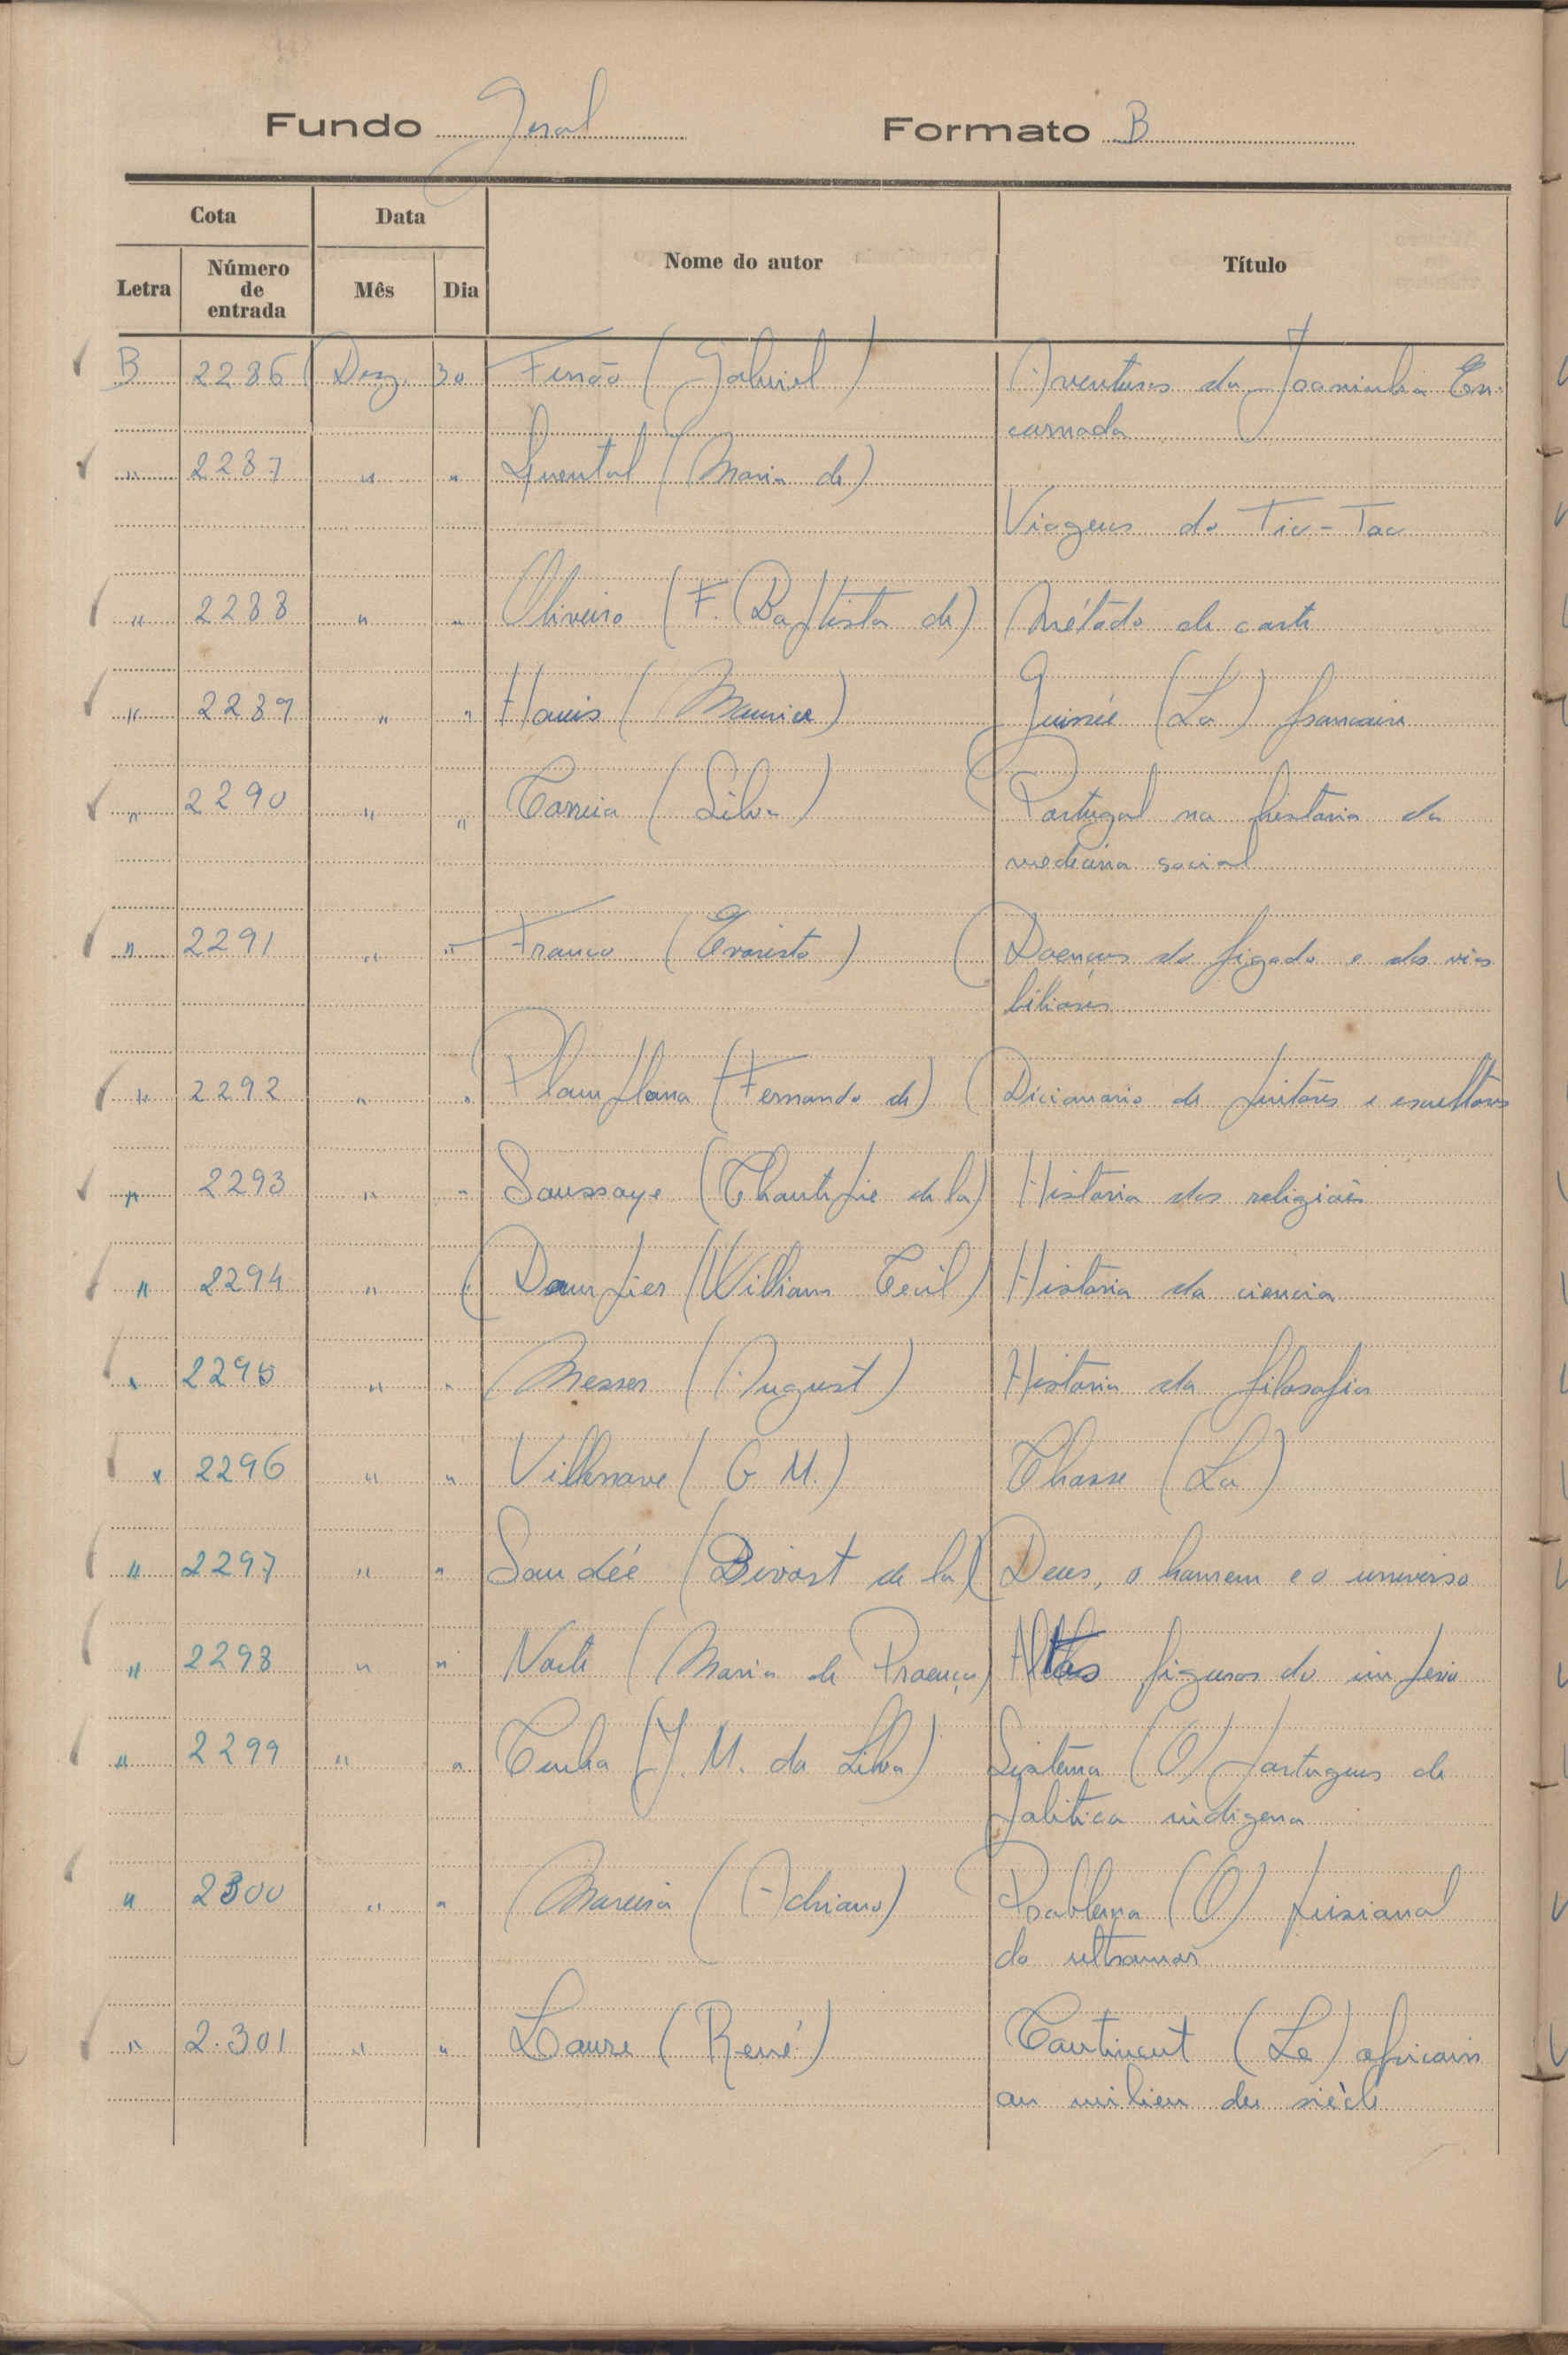 Fundo Geral Formato B
Cota Data Nome do autor Título
Letra Número de entrada Mês Dia
B 2286 Dez. 30 Ferrão (Gabriel) Aventuras da Joaninha En-
carnada
" 2287 " " Quental (Maria de)
Viagens do Tic-Tac
" 2288 " " Oliveira (F. Baptista de) Método de corte
" 2289 " " Houis (Maurice) Guinée (La) francaise
" 2290 " " Correia (Silva) Portugal na história da
medicina social
" 2291 " " Franco (Evaristo) Doenças do figado e das vias
biliares
" 2292 " " Pamplona (Fernando de) Dicionario de pintores e escultores
" 2293 " " Saussaye (Chantepie de la) História das religiões
" 2294 " " Dampier (William Cecil) História da ciencia
" 2295 " " Messer (August) História da filosofia
" 2296 " " Villenave (G. M.) Chasse (La)
" 2297 " " (Bivort de la) Deus, o homem e o universo
" 2298 " " Norte (Maria de Proença) Altas figuras do império
" 2299 " " Cunha (J. M. da Silva) Sistema (O) portugues de
politica indigena
" 2300 " " Moreira (Adriano) Problema (O) prisional
do ultramar
" 2.301 " " (René) Continent (Le) africain
au milieu du siècle